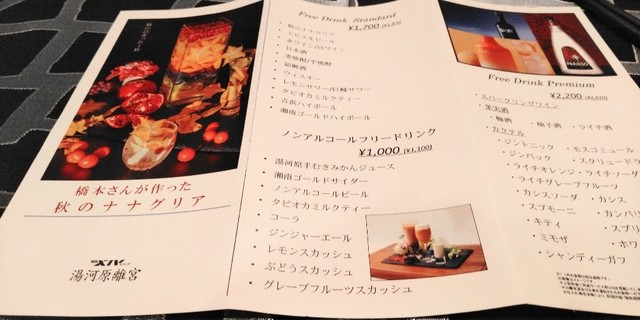 橋本さんが作った
秋のナナグリア
湯河原離宮
Free Drink Standard
¥1,700
・秋のナナグリア
・ヱビス生ビール
・赤ワイン/白ワイン
・日本酒
・麦焼酎/芋焼酎
・紹興酒
・ウィスキー
・レモンサワー/巨峰サワー
・タピオカミルクティー
・吉浜ハイボール
・湘南ゴールドハイボール
ノンアルコールフリードリンク
¥1,000 (¥1,100)
・湯河原手むきみかんジュース
・湘南ゴールドサイダー
・ノンアルコールビール
・タピオカミルクティー
・コーラ
・ジンジャーエール
・レモンスカッシュ
・ぶどうスカッシュ
・グレープフルーツスカッシュ
Free Drink Premium
¥2,200
・スパークリングワイン
・果実酒
・梅酒 ・柚子酒 ・ライチ酒
・カクテル
・ジントニック ・モスコミュール
・ジンバック ・スクリュード
・ライチオレンジ・ライチソーダ
・ライチグレープフルーツ
・カシスソーダ ・カシス
・スプモーニ ・カンパ
・キティ ・スプリ
・ミモザ ・ホワ
・シャンディーガフ